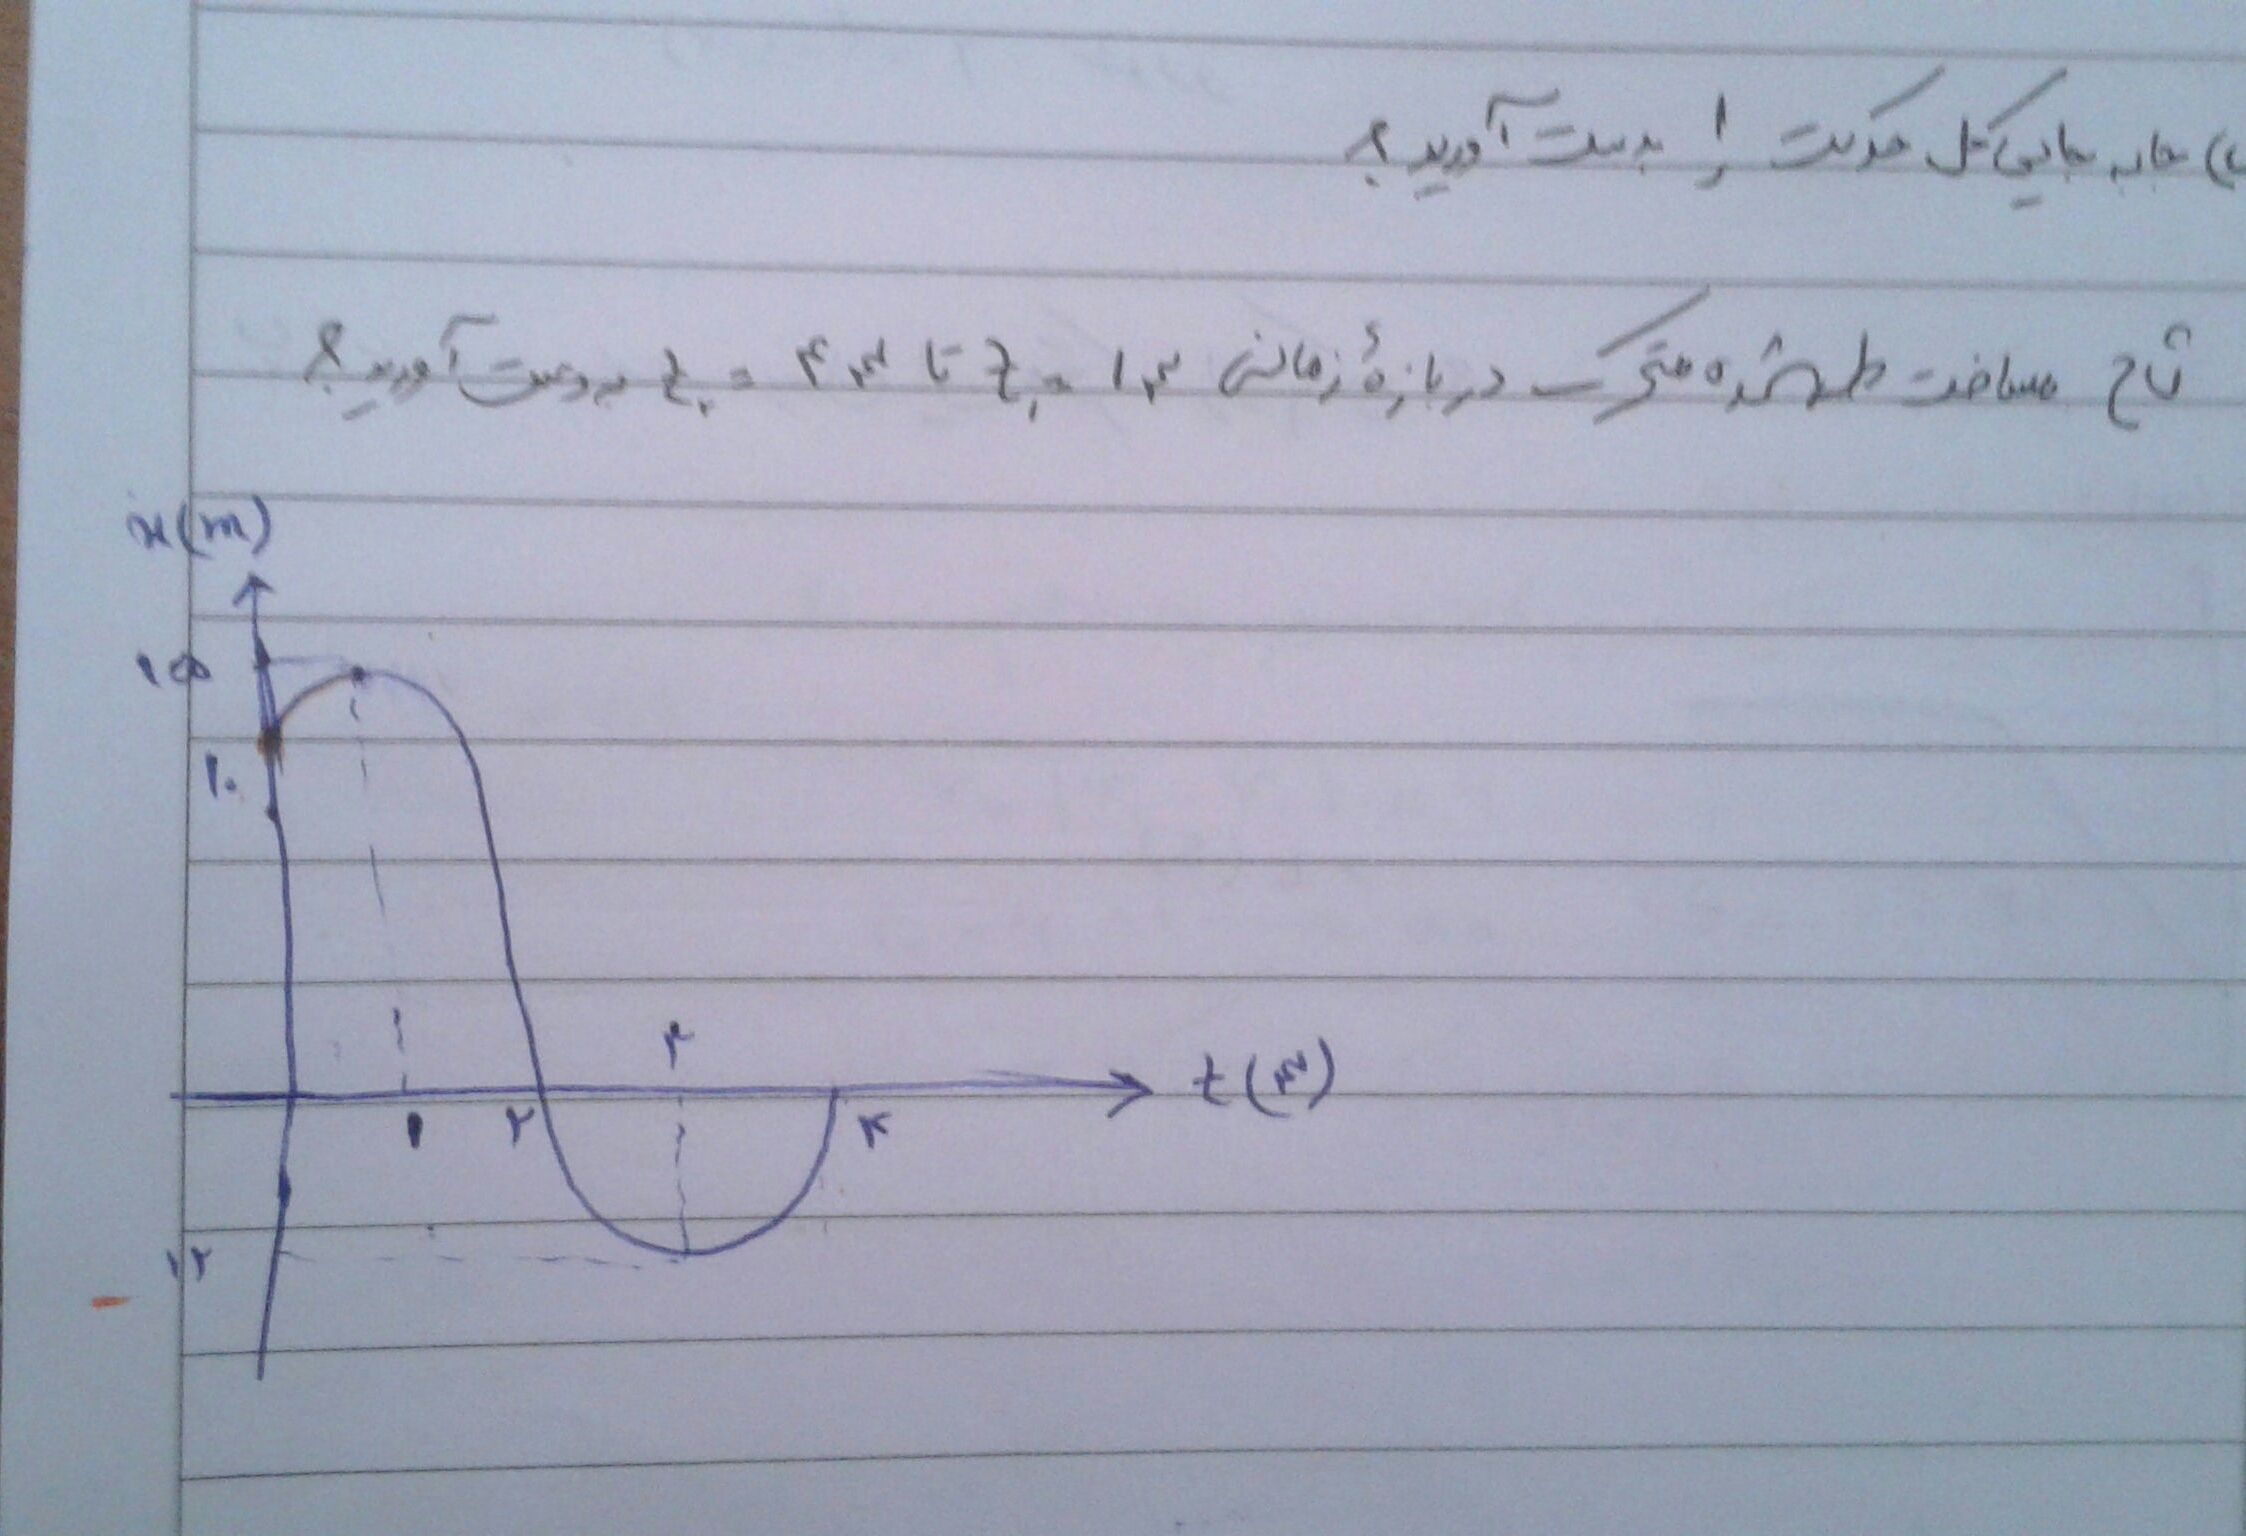 ب) جابه جایی کل حرکت را بدست آورید؟
ج) مسافت طی شده متحرک در بازهٔ زمانی t₁ = ۱s تا t₂ = ۴s به دست آورید؟
x(m)
۱۵
۱۰
۳
t(s)
۱
۲
۴
۱۲
-